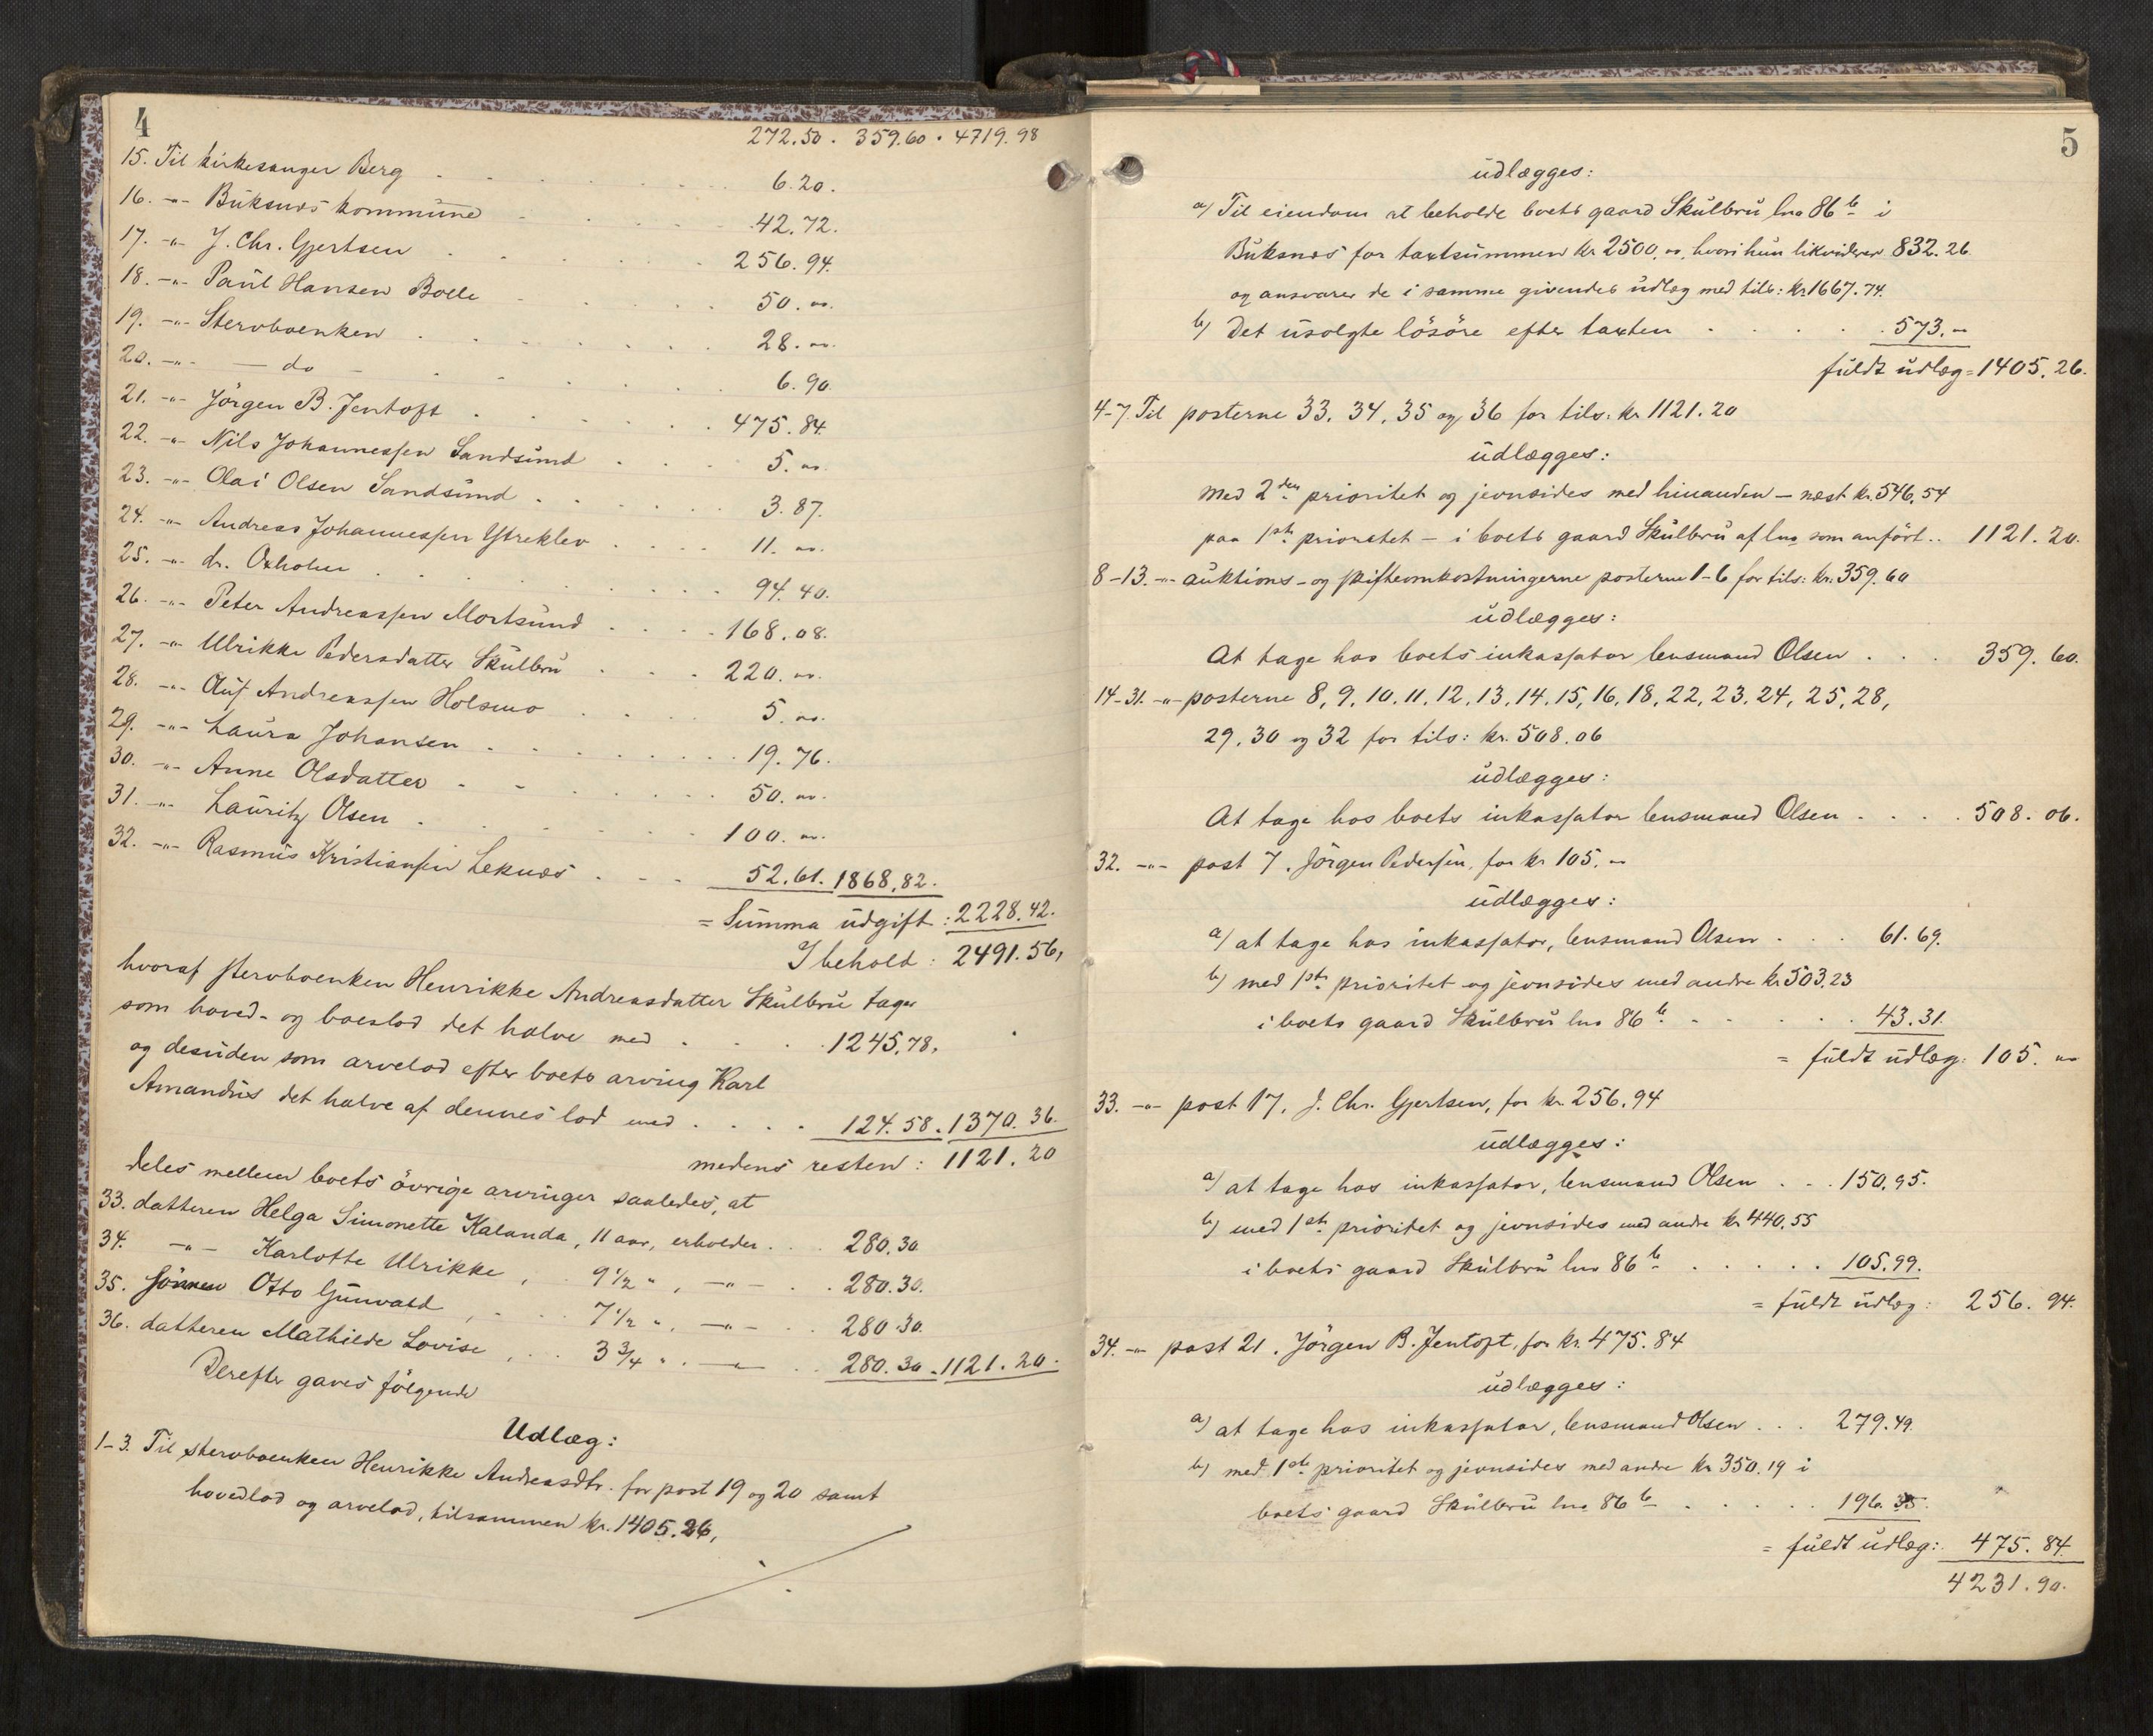 4
272.50. 359.60. 4719.98
15. Til kirkesanger Berg . . . . . . . 6.20.
16. -"- Buksnes kommune . . . . . 42.72.
17. -"- J. Chr. Gjertsen . . . . . . 256.94.
18. -"- Paul Hansen Bolle . . . . . 50. "".
19. -"- Stervboenken . . . . . . . 28. "".
20. -"- — do — . . . . . . . 6.90
21. -"- Jörgen B. Jentoft . . . . . . 475.84.
22. -"- Nils Johannessen Sandsund . . . 5. "".
23. -"- Olai Olsen Sandsund . . . . . 3.87.
24. -"- Andreas Johannessen Ytreklev . . . . 11. "".
25. -"- dr. Oxholm . . . . . . . 94.40.
26. -"- Peter Andreassen Mortsund . . . . 168.08.
27. -"- Ulrikke Pedersdatter Skulbru . . . 220. "".
28. -"- Oluf Andreassen Holsmo . . . . 5. "".
29. -"- Laura Johansen . . . . . . . 19.76.
30. -"- Anne Olsdatter - - . . . . . 50. "".
31. -"- Lauritz Olsen . . . . . . . 100. "".
32. -"- Rasmus Kristiansen Leknes . . . 52.61. 1868.82.
= Summa udgift : 2228.42.
I behold : 2491.56,
hvoraf stervboenken Henrikke Andreasdatter Skulbru tager
som hoved- og boeslod det halve med . . . . 1245,78,
og desuden som arvelod efter boets arving Karl
Amandus det halve af dennes lod med . . . . 124.58. 1370.36.
medens resten : 1121.20
deles mellem boets övrige arvinger saaledes, at
33. datteren Helga Simonette Kalanda, 11 aar, erholder . . . 280.30.
34. -"- Karlotte Ulrikke , . 9 1/2 " , -"- . . . 280.30.
35. sönnen Otto Gunvald , . . . 7 1/2 " , -"- . . 280.30.
36. datteren Mathilde Lovise , . . 3 3/4 " . -"- . . 280.30. 1121.20.
Derefter gaves følgende
Udlæg:
1-3. Til stervboenken Henrikke Andreasdtr. for post 19 og 20 samt
hovedlod og arvelod, tilsammen kr. 1405.26,
5
udlægges:
a) Til eiendom at beholde boets gaard Skulbru lno 86 b i
Buksnes for taxtsummen kr 2500, "", hvori hun likviderer 832.26
og ansvarer de i samme givendes udlæg med tils: kr 1667.74.
b) Det usolgte lösöre efter taxten . . . . . 573.-
fuldt udlæg = 1405.26.
4-7. Til posterne 33. 34. 35 og 36 for tils: kr. 1121.20
udlægges:
Med 2 den prioritet og jevnsides med hinanden — næst kr. 546,54
paa 1ste prioritet — i boets gaard Skulbru af lno som anfört . . 1121.20.
8-13. -"- auktions- og skifteomkostningerne posterne 1-6 for tils: kr. 359.60
udlægges:
At tage hos boets inkassator lensmand Olsen . . . 359.60.
14-31. -"- posterne 8, 9, 10. 11. 12, 13, 14. 15, 16, 18, 22, 23. 24, 25, 28,
29, 30 og 32 for tils: kr. 508.06
udlægges:
At tage hos boets inkassator lensmand Olsen . . . . 508.06.
32. -"- post 7. Jörgen Pedersen, for kr 105. "
udlægges:
a) at tage hos inkassator, lensmand Olsen . . . 61.69.
b) med 1ste prioritet og jevnsides med andre kr 503,23
i boets gaard Skulbru lno 86 b . . . . . . 43.31.
= fuldt udlæg: 105. ""
33. -"- post 17, J. Chr. Gjertsen, for kr. 256.94
udlægges:
a) at tage hos inkassator, lensmand Olsen . . . 150.95.
b) med 1ste prioritet og jevnsides med andre kr 440.55
i boets gaard Skulbru lno 86 b . . . . . 105.99.
= fuldt udlæg: 256.94.
34. -"- post 21. Jörgen B. Jentoft, for kr. 475.84
udlægges:
a) at tage hos inkassator, lensmand Olsen . . . 279.49.
b) med 1ste prioritet og jevnsides med andre kr 350.19 i
boets gaard Skulbru lno 86 b . . . . . 196.35.
= fuldt udlæg: 475.84.
4231.90.